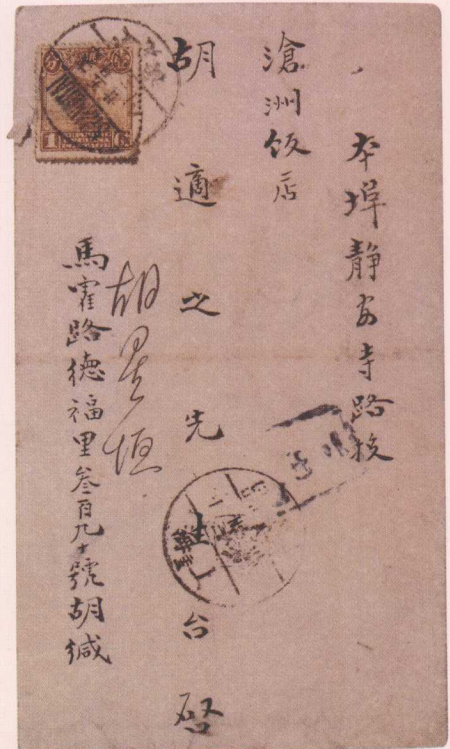 本埠靜安寺路投
滄洲飯店
胡適之先生台啓
馬霍路德福里叁百九十號胡緘
1